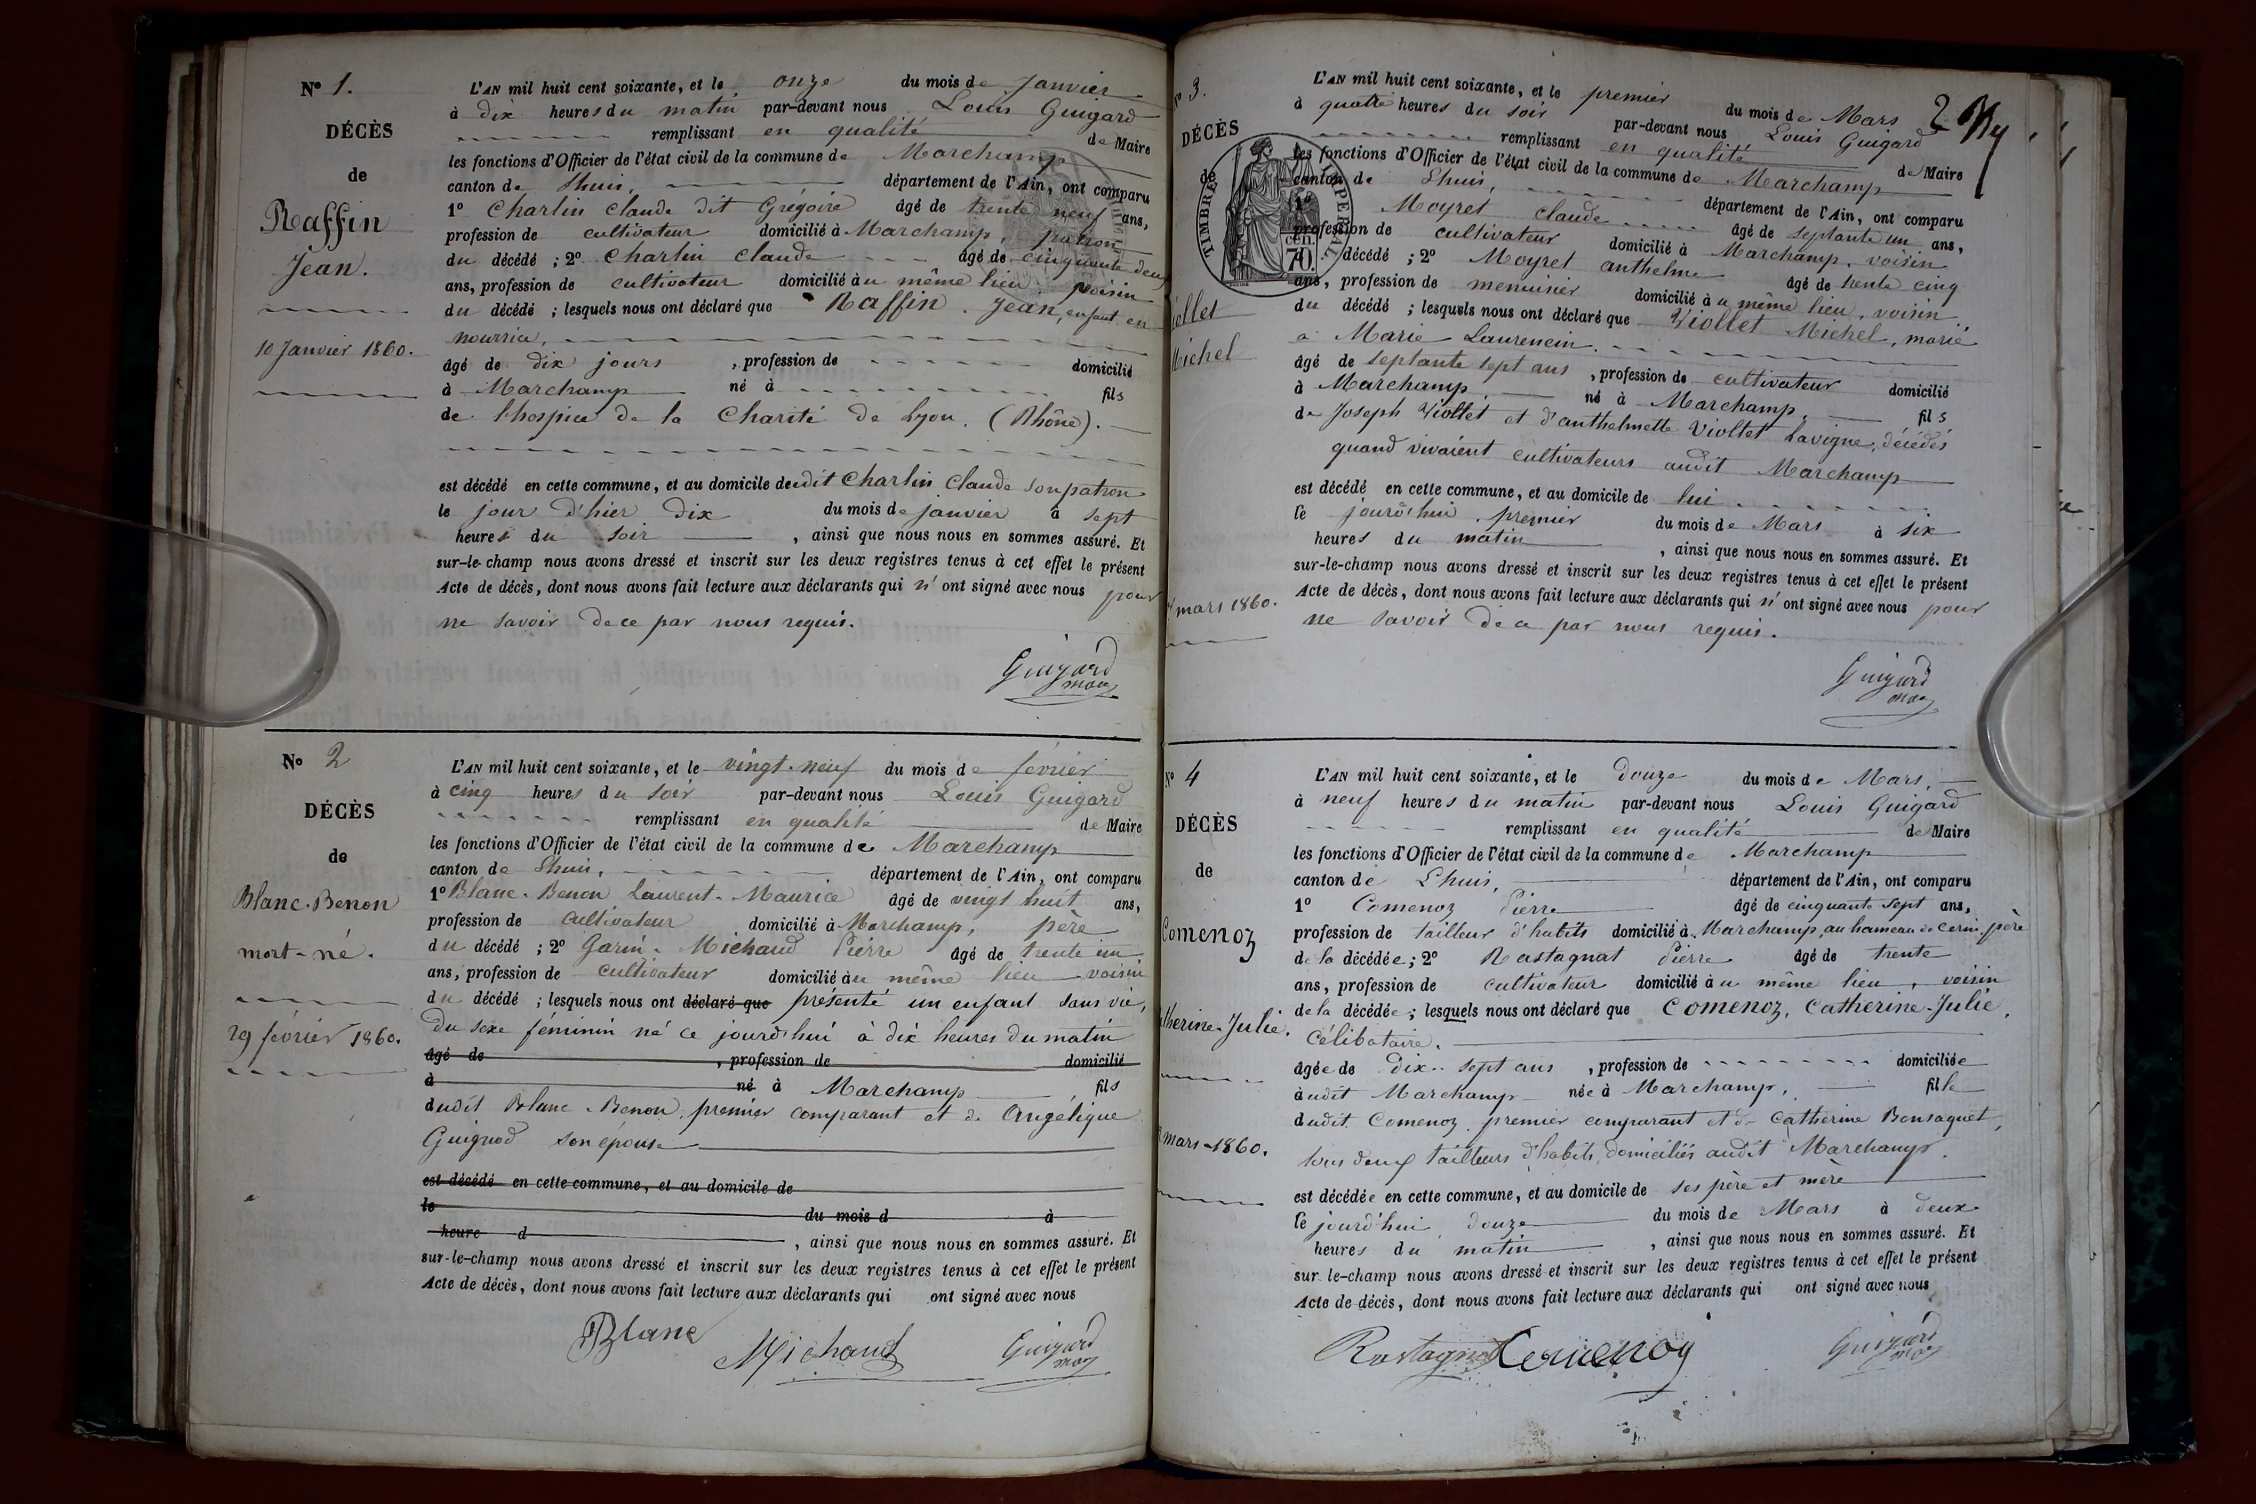 N° 1.
DÉCÈS
de
Raffin
Jean.
10 Janvier 1860.
L'AN mil huit cent soixante, et le onze du mois de Janvier
à dix heures du matin par-devant nous Louis Guigard
remplissant en qualité de Maire
les fonctions d'Officier de l'état civil de la commune de Marchamp
canton de Lhuis, département de l'Ain, ont comparu
1° Charlin Claude dit Grégoire âgé de trente neuf ans,
profession de cultivateur domicilié à Marchamp, patron
du décédé ; 2° Charlin Claude âgé de cinquante deux
ans, profession de cultivateur domicilié au même lieu voisin
du décédé ; lesquels nous ont déclaré que Raffin Jean, enfant en
nourrice,
âgé de dix jours , profession de domicilié
à Marchamp né à fils
de l'hospice de la Charité de Lyon. (Rhône).
est décédé en cette commune, et au domicile dudit Charlin Claude son patron
le jour d'hier dix du mois de janvier à sept
heures du soir , ainsi que nous nous en sommes assuré. Et
sur-le-champ nous avons dressé et inscrit sur les deux registres tenus à cet effet le présent
Acte de décès, dont nous avons fait lecture aux déclarants qui n'ont signé avec nous pour
ne savoir de ce par nous requis.
Guigard
maire
N° 2
DÉCÈS
de
Blanc-Benon
mort-né.
29 février 1860.
L'AN mil huit cent soixante, et le vingt-neuf du mois de février
à cinq heures du soir par-devant nous Louis Guigard
remplissant en qualité de Maire
les fonctions d'Officier de l'état civil de la commune de Marchamp
canton de Lhuis, département de l'Ain, ont comparu
1° Blanc-Benon Laurent-Maurice âgé de vingt huit ans,
profession de cultivateur domicilié à Marchamp, père
du décédé ; 2° Garin-Michaud Pierre âgé de trente un
ans, profession de cultivateur domicilié au même lieu voisin
du décédé ; lesquels nous ont déclaré que présenté un enfant sans vie,
du sexe féminin né ce jourd'hui à dix heures du matin
âgé de , profession de domicilié
à né à Marchamp fils
dudit Blanc-Benon, premier comparant et de Angélique
Guignod son épouse
est décédé en cette commune, et au domicile de
le du mois d à
heure d , ainsi que nous nous en sommes assuré. Et
sur-le-champ nous avons dressé et inscrit sur les deux registres tenus à cet effet le présent
Acte de décès, dont nous avons fait lecture aux déclarants qui ont signé avec nous
Blanc Michaud Guigard
maire
2
N° 3.
DÉCÈS
de
iollet
Michel
mars 1860.
TIMBRE IMPERIAL
70 cen.
L'AN mil huit cent soixante, et le premier du mois de Mars
à quatre heures du soir par-devant nous Louis Guigard
remplissant en qualité de Maire
les fonctions d'Officier de l'état civil de la commune de Marchamp
canton de Lhuis, département de l'Ain, ont comparu
1° Moyret Claude âgé de septante un ans,
profession de cultivateur domicilié à Marchamp, voisin
d décédé ; 2° Moyret anthelme âgé de trente cinq
ans, profession de menuisier domicilié au même lieu, voisin
du décédé ; lesquels nous ont déclaré que Viollet Michel, marié
à Marie Laurencin.
âgé de septante sept ans , profession de cultivateur domicilié
à Marchamp, né à Marchamp, fils
de Joseph Viollet et d'anthelmette Viollet Lavigne, décédés
quand vivaient cultivateurs audit Marchamp
est décédé en cette commune, et au domicile de lui
le jourd'hui premier du mois de Mars à six
heures du matin , ainsi que nous nous en sommes assuré. Et
sur-le-champ nous avons dressé et inscrit sur les deux registres tenus à cet effet le présent
Acte de décès, dont nous avons fait lecture aux déclarants qui n'ont signé avec nous pour
ne savoir de ce par nous requis.
Guigard
maire
N° 4
DÉCÈS
de
Comenoz
therine-Julie.
mars 1860.
L'AN mil huit cent soixante, et le douze du mois de Mars,
à neuf heures du matin par-devant nous Louis Guigard
remplissant en qualité de Maire
les fonctions d'Officier de l'état civil de la commune de Marchamp
canton de Lhuis, département de l'Ain, ont comparu
1° Comenoz Pierre âgé de cinquante sept ans,
profession de tailleur d'habits domicilié à Marchamp, au hameau de Cerin, père
de la décédée ; 2° Rastagnat Pierre âgé de trente
ans, profession de cultivateur domicilié au même lieu, voisin
de la décédée ; lesquels nous ont déclaré que Comenoz, Catherine-Julie,
Célibataire.
âgée de dix-sept ans , profession de domiciliée
audit Marchamp née à Marchamp, fille
dudit Comenoz premier comparant et de Catherine Bonsaquet,
tous deux tailleurs d'habits domiciliés audit Marchamp.
est décédée en cette commune, et au domicile de ses père et mère
le jourd'hui douze du mois de Mars à deux
heures du matin , ainsi que nous nous en sommes assuré. Et
sur-le-champ nous avons dressé et inscrit sur les deux registres tenus à cet effet le présent
Acte de décès, dont nous avons fait lecture aux déclarants qui ont signé avec nous
Rastagnat Comenoz Guigard
maire